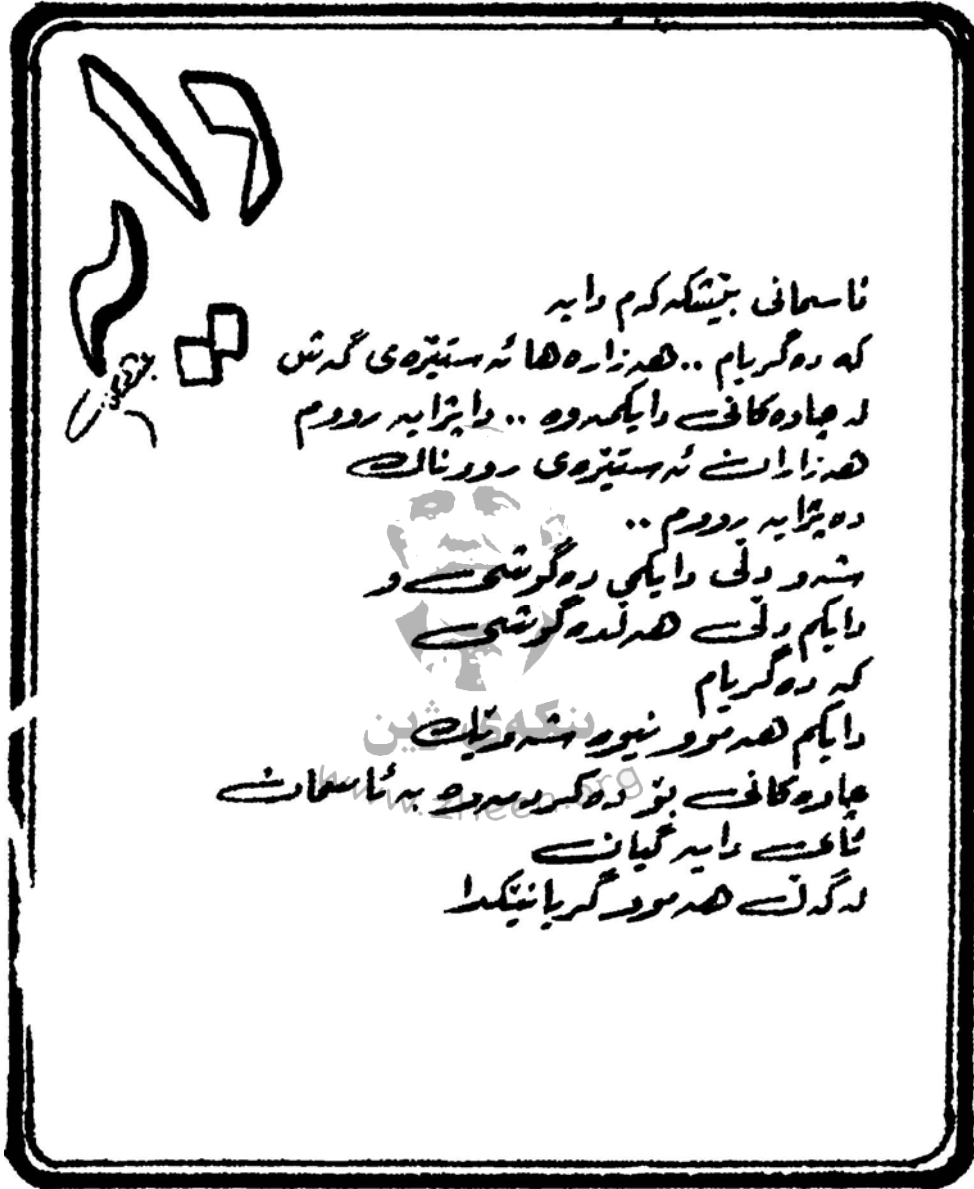 دایە
ئاسمانی بێشکەکەم دایە
کە دەگریام .. هەزارەها ئەستێرەی گەش
لە چاوەکانی دایکمەوە .. دا پژایە رووم
هەزاران ئەستێرەی رووناک
دەپژایە رووم ..
شەو دڵی دایکی دەگوشی و
دایکم دڵی هەڵدەگوشی
کە دەگریام
دایکم هەموو نیوە شەوێک
چاوەکانی بۆ دەکردمەوە بە ئاسمان
ئای دایە گیان
لەگەڵ هەموو گریانێکدا
بنکەی ژین
www.zheen.org